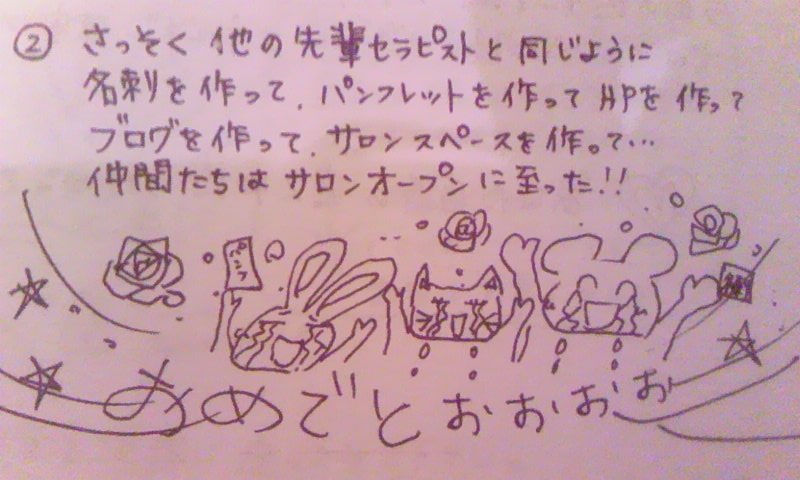 ② さっそく 他の 先輩セラピストと 同じように
名刺を作って、パンフレットを作って HPを作って
ブログを作って、サロンスペースを作って…
仲間たちは サロンオープンに至った!!
おめでとぉぉぉぉ